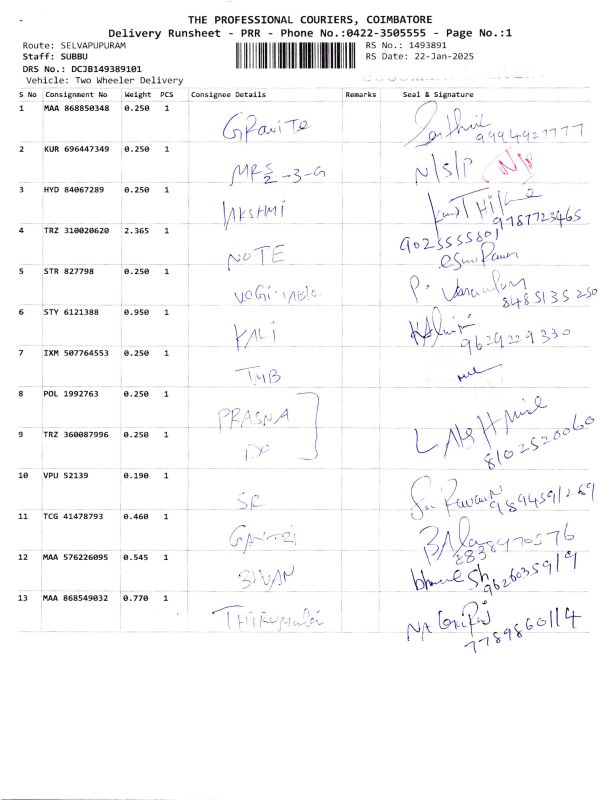 THE PROFESSIONAL COURIERS, COIMBATORE
Delivery Runsheet - PRR - Phone No.:0422-3505555 - Page No.:1
Route: SELVAPUPURAM
RS No.: 1493891
Staff: SUBBU
RS Date: 22-Jan-2025
DRS No.: DCJB149389101
Vehicle: Two Wheeler Delivery
S No Consignment No Weight PCS Consignee Details Remarks Seal & Signature
1 MAA 868850348 0.250 1
GRAVITE
9994927777
2 KUR 696447349 0.250 1
MRS 2-3-G N/S/P
3 HYD 84067289 0.250 1
LAKSHMI
9787723465
4 TRZ 310020620 2.365 1
9025555801
NOTE
5 STR 827798 0.250 1
P.
8485135250
6 STY 6121388 0.950 1
KALI
9629229330
7 IXM 507764553 0.250 1
TMB
8 POL 1992763 0.250 1
PRASNA
9 TRZ 360087996 0.250 1
DO
8102520060
10 VPU 52139 0.190 1
SR
9894591269
11 TCG 41478793 0.460 1
GAITRI
8838470576
12 MAA 576226095 0.545 1
bhuvanesh
9626035919
13 MAA 868549032 0.770 1
7789860114